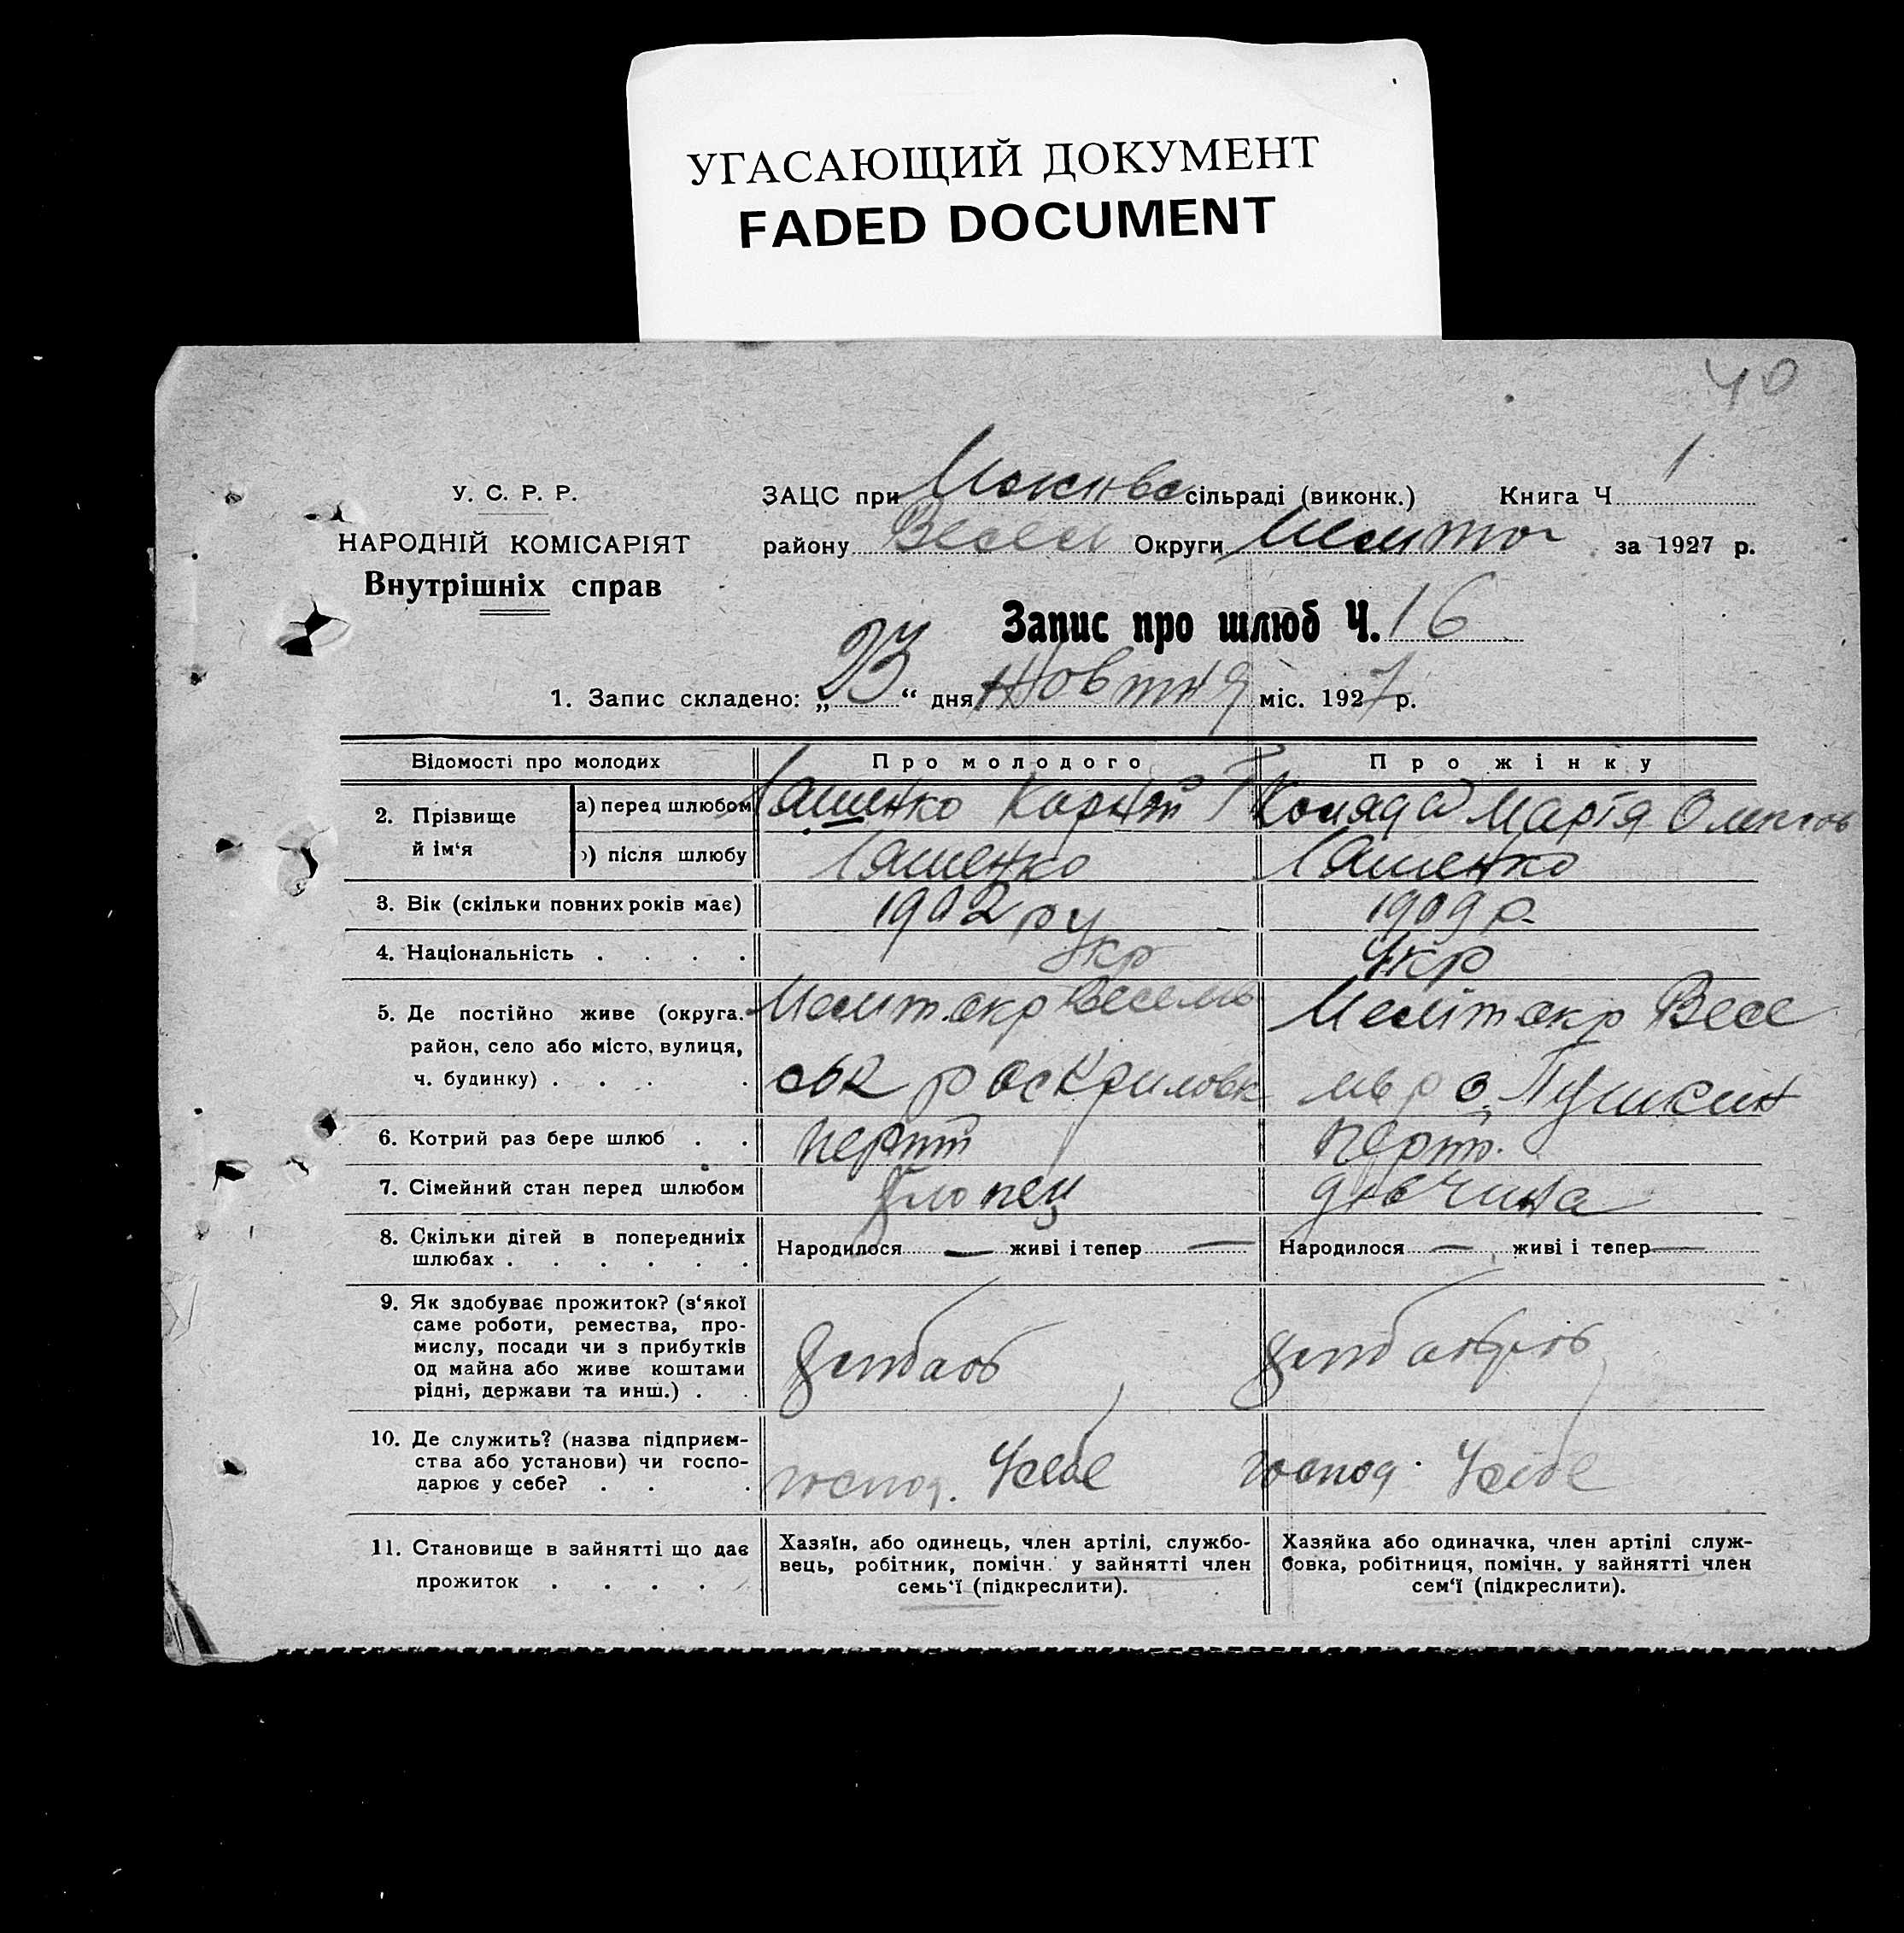 УГАСАЮЩИЙ ДОКУМЕНТ
FADED DOCUMENT
40
У. С. Р. Р.
НАРОДНІЙ КОМІСАРІЯТ
Внутрішніх справ
ЗАЦС при сільраді (виконк.) Книга Ч 1
району Весел Округи Мелітоп за 1927 р.
Запис про шлюб Ч. 16
1. Запис складено: „ 23 “ дня Жовтня міс. 1927 р.
Відомості про молодих Про молодого Про жінку
2. Прізвище й ім‘я а) перед шлюбом Ляшенко Коляда Марія
б) після шлюбу Ляшенко Ляшенко
3. Вік (скільки повних років має) 1902 р 1909 р.
4. Національність . . . . Укр Укр
5. Де постійно живе (округа. Меліт окр Весель Меліт окр Весе
район, село або місто, вулиця,
ч. будинку) . . . . ськ р Пушкин
6. Котрий раз бере шлюб . .
7. Сімейний стан перед шлюбом хлопец дівчина
8. Скільки дітей в попередниіх
шлюбах . . . . . . Народилося — живі і тепер — Народилося — живі і тепер —
9. Як здобуває прожиток? (з‘якої
саме роботи, ремества, про-
мислу, посади чи з прибутків
од майна або живе коштами
рідні, держави та инш.) . .
10. Де служить? (назва підприєм-
ства або установи) чи госпо-
дарює у себе? . . . господ. Усебе господ. Усебе
11. Становище в зайнятті що дає
прожиток . . . .
Хазяїн, або одинець, член артілі, службо-
вець, робітник, помічн. у зайнятті член
семь‘ї (підкреслити).
Хазяйка або одиначка, член артілі служ-
бовка, робітниця, помічн. у зайнятті член
сем‘ї (підкреслити).